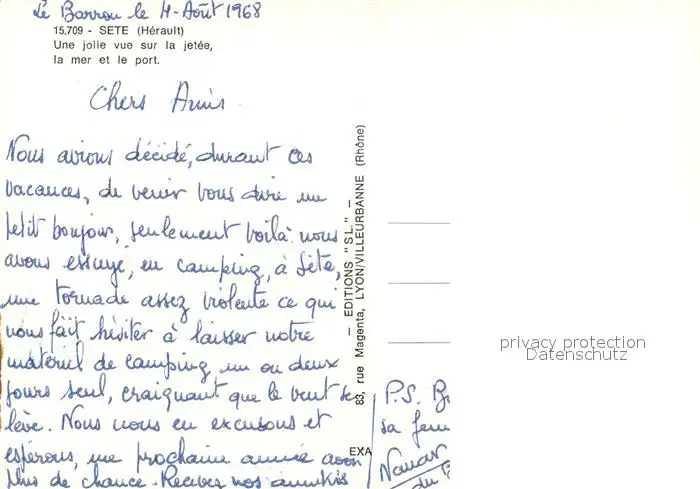 Le Barrou le 4-Août 1968
15.709 - SETE (Hérault)
Une jolie vue sur la jetée,
la mer et le port.
Chers Amis
Nous avions décidé, durant ces
vacances, de venir vous dire un
petit bonjour, seulement voilà nous
avons essuyé, en camping, à Sète,
une tornade assez violente ce qui
nous fait hésiter à laisser notre
matériel de camping un ou deux
jours seul, craignant que le vent se
lève. Nous nous en excusons et
espérons, une prochaine année avoir
plus de chance. Recevez nos amitiés
— EDITIONS "S.L." —
83, rue Magenta, LYON/VILLEURBANNE (Rhône)
EXA
P.S.
sa
du
privacy protection
Datenschutz